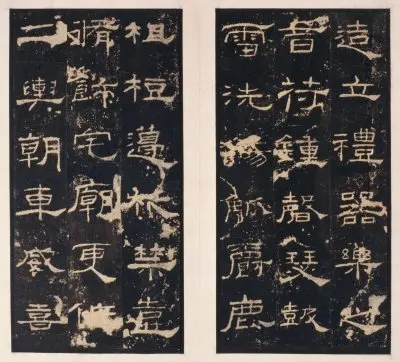 造立禮器樂之
音苻鍾磬瑟皷
雷洗觴觚爵鹿
柤梪籩柉禁壼
脩飾宅廟更作
二輿朝車威喜